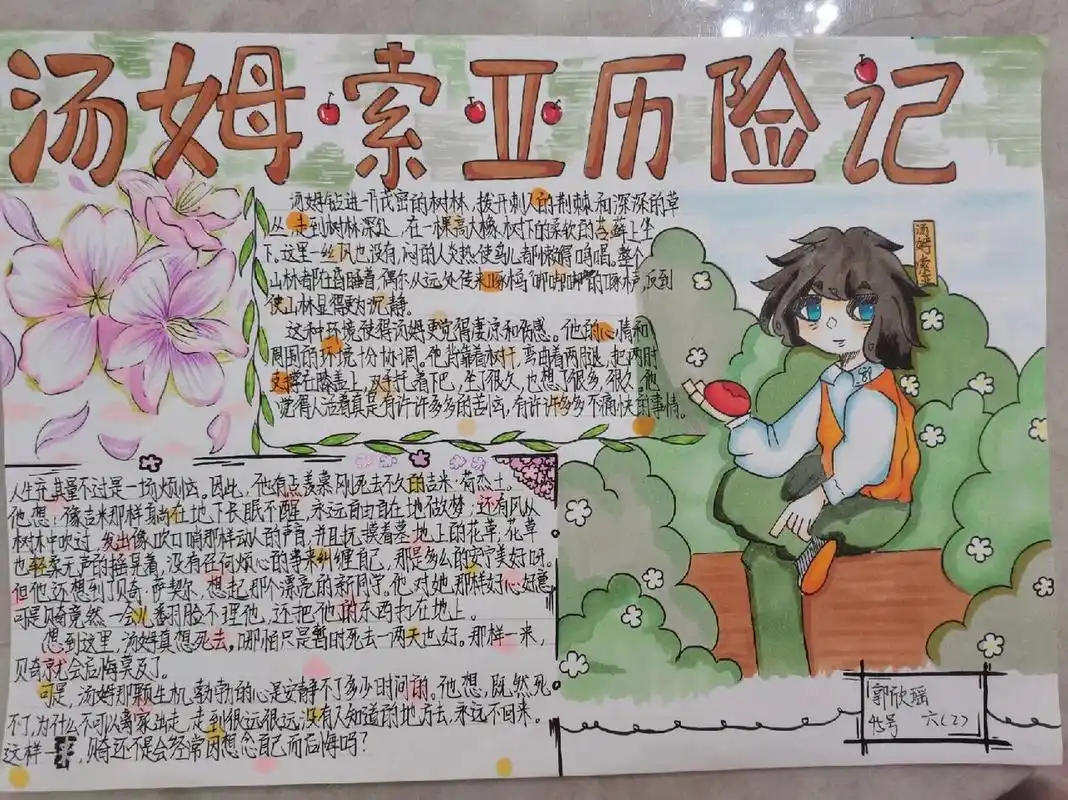 汤姆·索·亚历险记
汤姆钻进一片茂密的树林，拨开刺人的荆棘和深深的草
丛，走到树林深处，在一棵高大橡树下的柔软的苔藓上坐
下，这里一丝风也没有，闷的人炎热使鸟儿都懒得鸣唱。整个
山林都在昏睡着，偶尔从远处传来啄木鸟"唧唧唧"的啄木声，反到
使山林显得更为沉静。
这种环境使得汤姆更觉得凄凉和伤感。他的心情和
周围的环境十分协调。他背靠着树干，弯曲着两腿，把两肘
支撑在膝盖上，双手托着下巴，坐了很久，也想了很多，很久。他
觉得人活着真是有许许多多的苦恼，有许许多多不痛快的事情。
汤姆索亚
人生充其量不过是一场烦恼。因此，他有点羡慕刚死去不久的吉米·荷杰士。
他想：像吉米那样躺在地下长眠不醒，永远自由自在地做梦；还有风从
树林中吹过，发出像吹口哨那样动人的声音，并且抚摸着墓地上的花草，花草
也轻柔无声的摇晃着，没有任何烦心的事来纠缠自己，那是多么的安宁美好呀。
但他还想到了贝奇·萨契尔，想起那个漂亮的新同学。他对她那样好心好意，
可是贝奇竟然一会儿翻脸不理他，还把他的东西扔在地上。
想到这里，汤姆真想死去。哪怕只是暂时死去一两天也好。那样一来，
贝奇就会后悔莫及了。
可是，汤姆那颗生机勃勃的心是安静不了多少时间的。他想，既然死
不了，为什么不可以离家出走，走到很远很远，没有人知道的地方去，永远不回来。
这样一来，贝奇还不是会经常因想念自己而后悔吗？
郭欣瑶
45号 六(2)